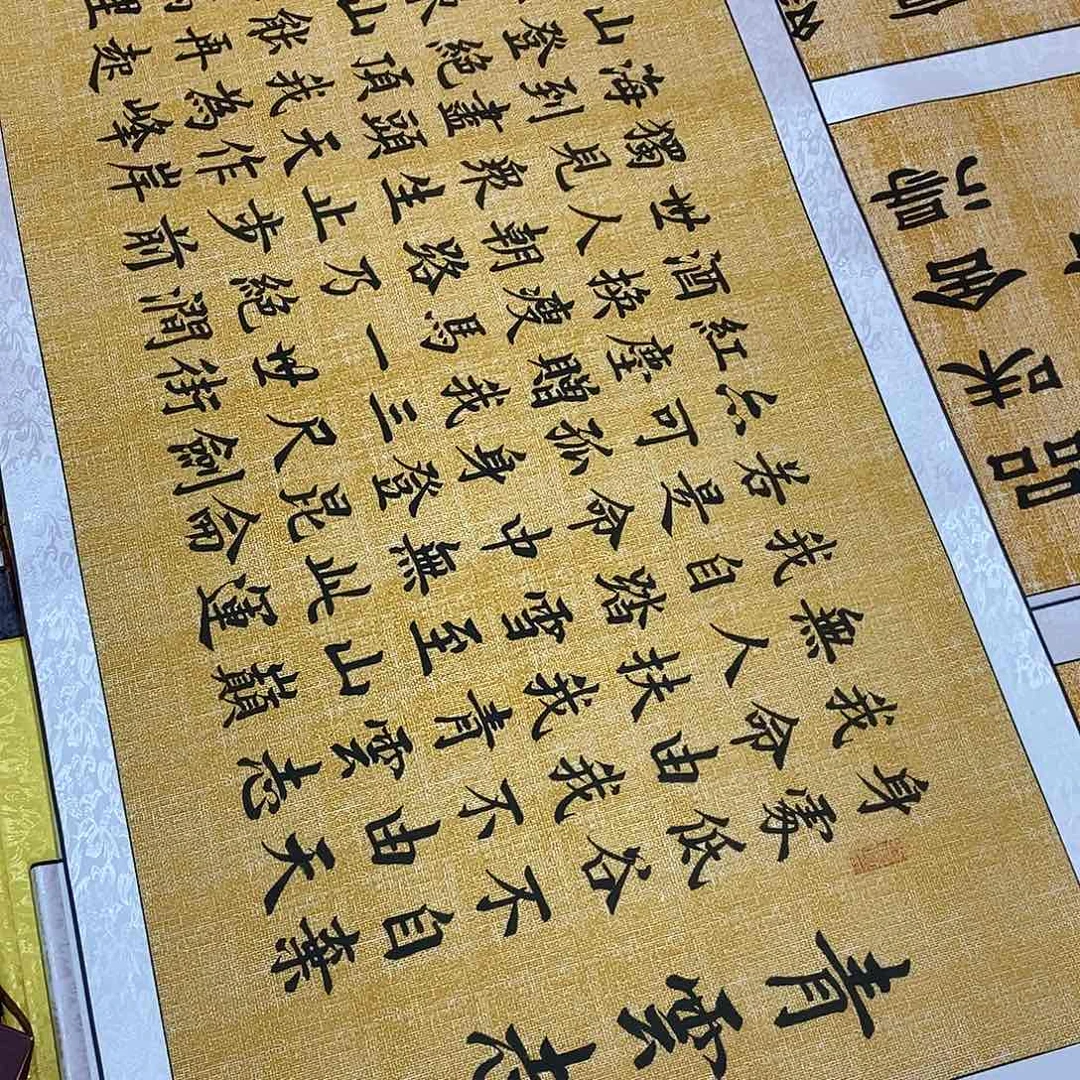 青雲志
身處低谷不自棄
我命由我不由天
無人扶我青雲志
我自踏雪至山巔
若是命中無此運
亦可孤身登昆侖
紅塵贈我三尺劍
酒換瘦馬一世街
世人朝路乃絕澗
獨見眾生止步前
海到盡頭天作岸
山登絕頂我為峰
山能再起
里
品味舍